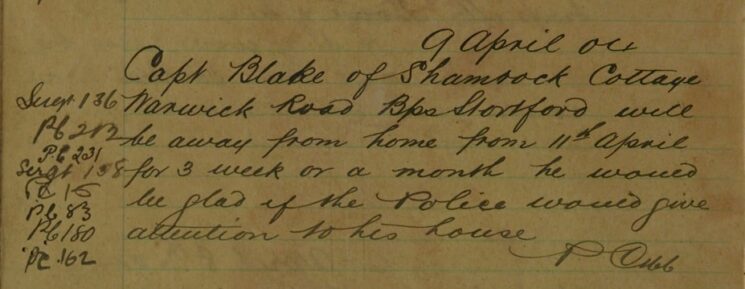 9 April 04
Capt Blake of Shamrock Cottage
Warwick Road Bps Stortford will
be away from home from 11th April
for 3 week or a month he would
be glad if the Police would give
attention to his house
Sergt 136
PC 213
PC 231
Sergt 108
PC 15
PC 83
PC 180
PC 162